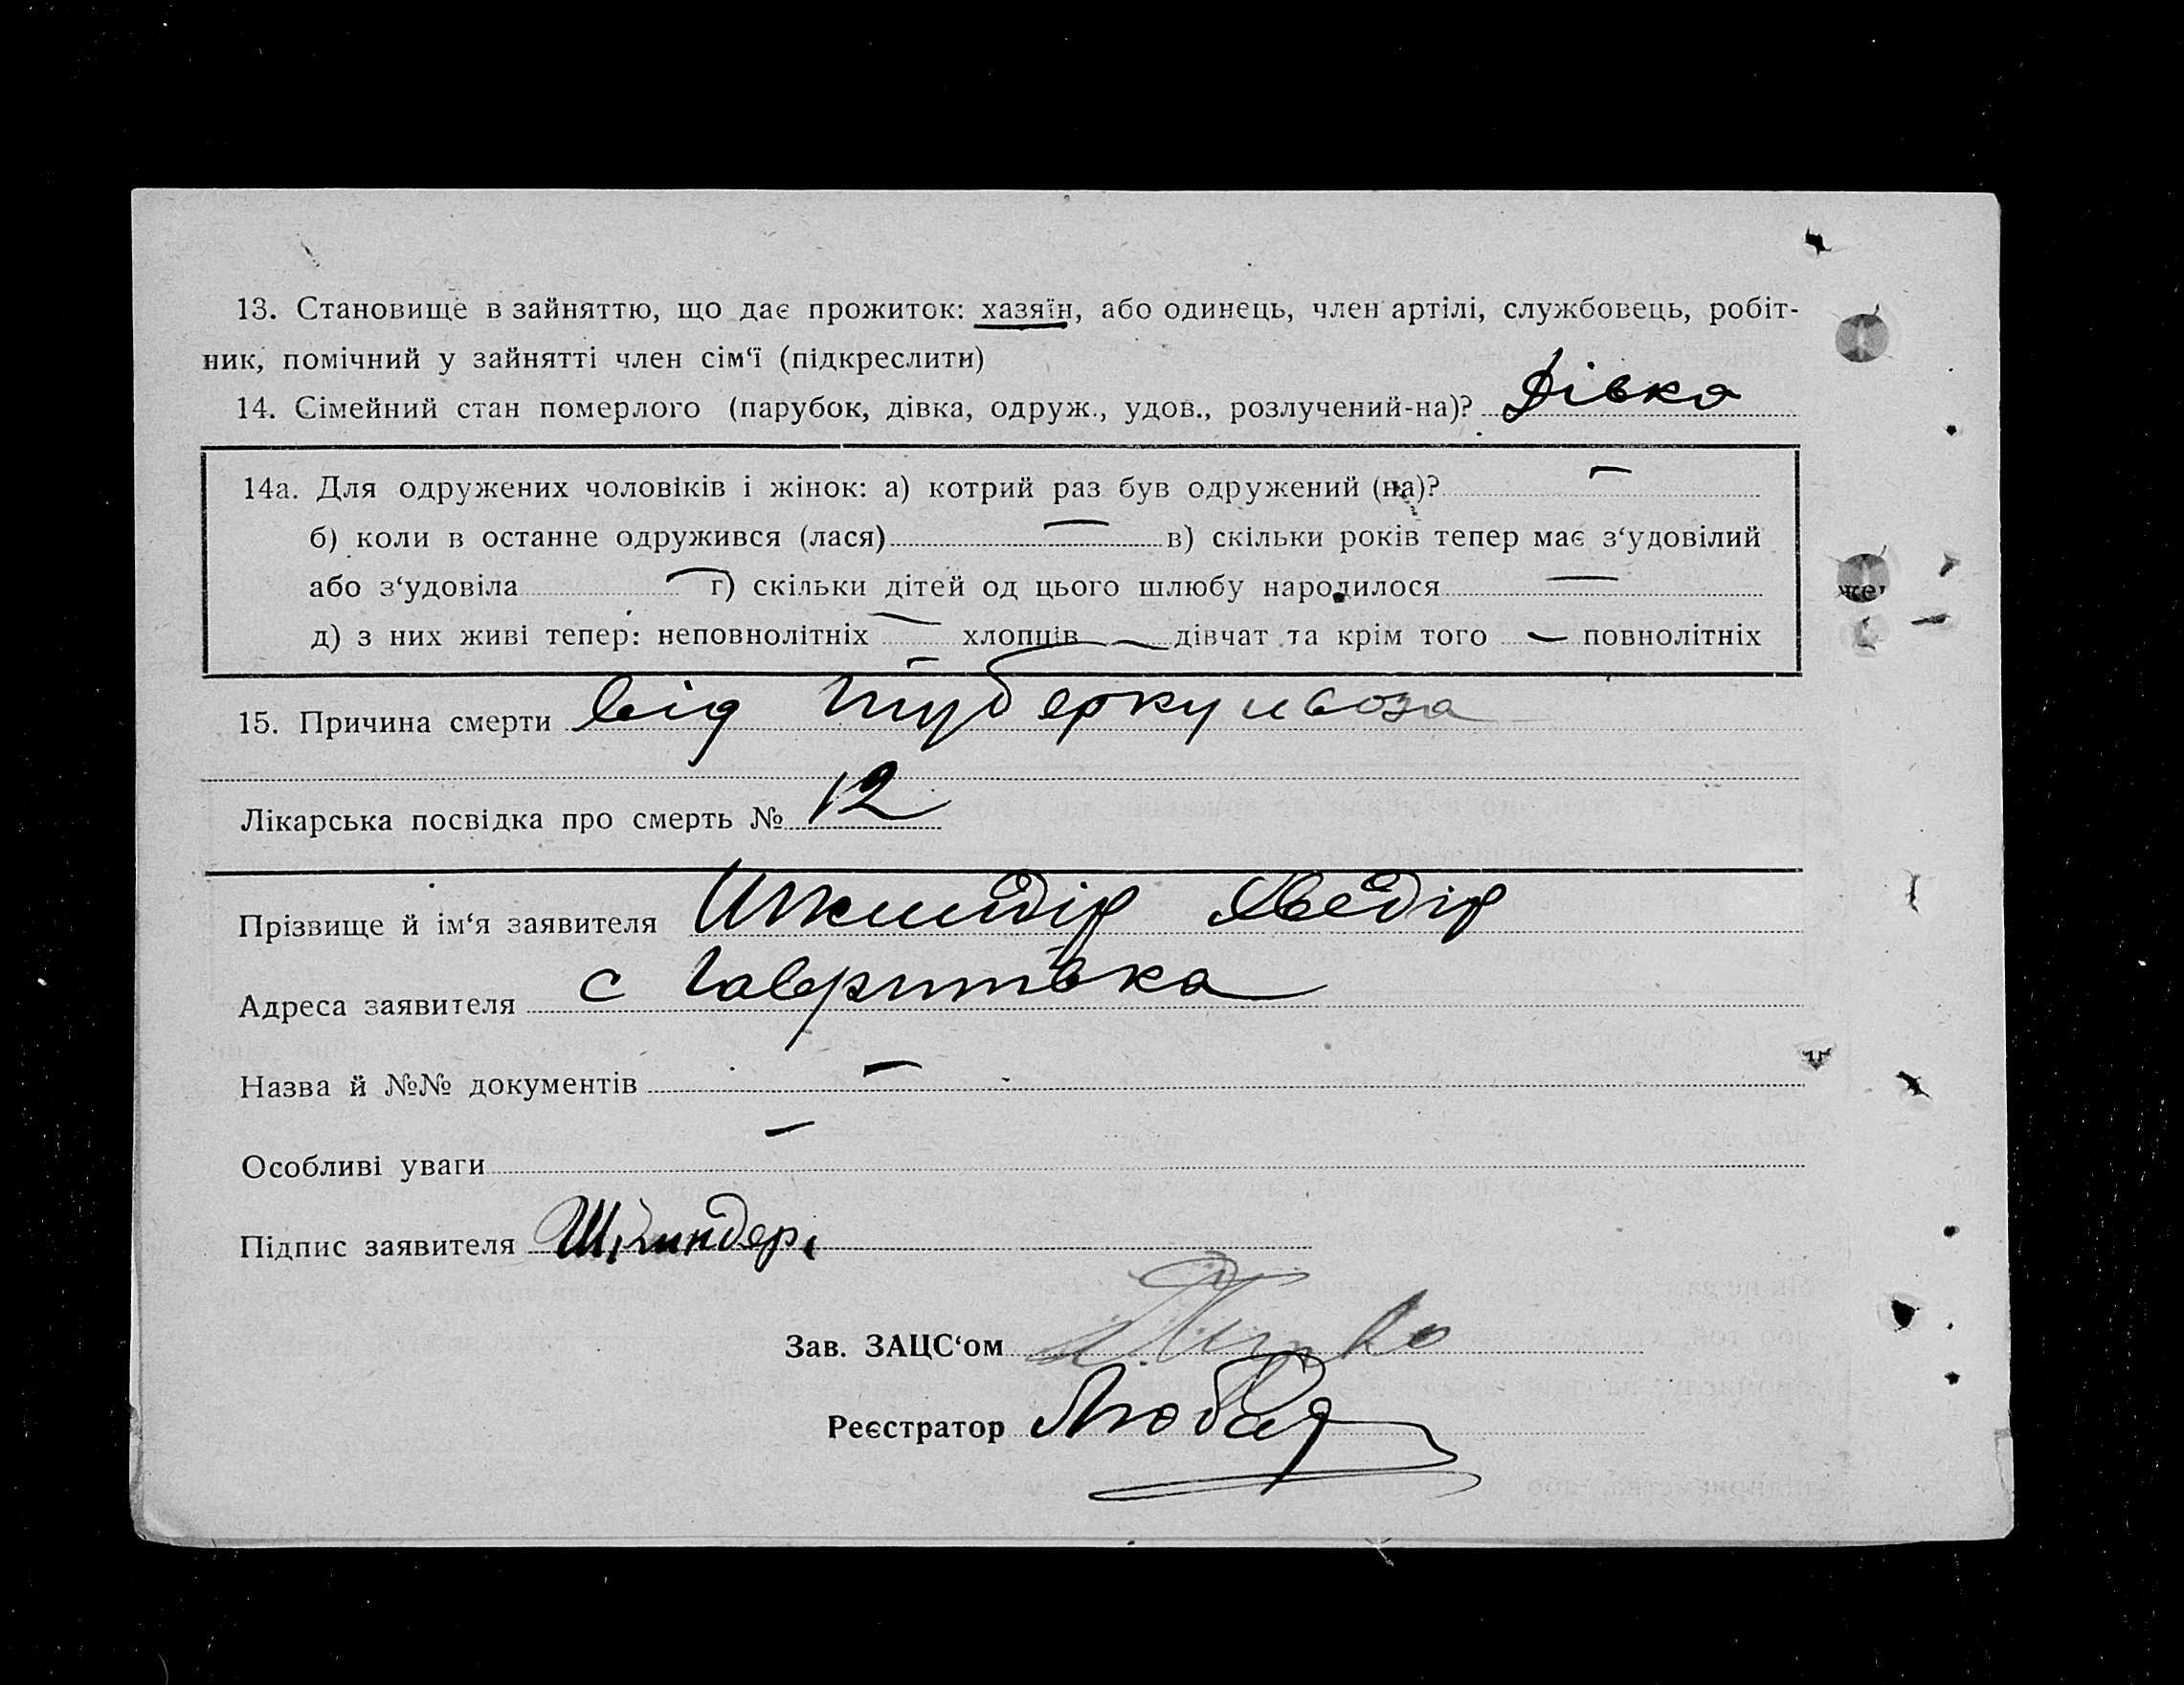 13. Становище в зайняттю, що дає прожиток: хазяїн, або одинець, член артілі, службовець, робіт-
ник, помічний у зайнятті член сім‘ї (підкреслити)
14. Сімейний стан померлого (парубок, дівка, одруж., удов., розлучений-на)? Дівка
14а. Для одружених чоловіків і жінок: а) котрий раз був одружений (на)? —
б) коли в останне одружився (лася) — в) скільки років тепер має з‘удовілий
або з‘удовіла — г) скільки дітей од цього шлюбу народилося —
д) з них живі тепер: неповнолітніх — хлопців — дівчат та крім того — повнолітніх
15. Причина смерти від туберкульоза
Лікарська посвідка про смерть № 12
Прізвище й ім‘я заявителя
Адреса заявителя с Гавритівка
Назва й №№ документів —
Особливі уваги —
Підпис заявителя
Зав. ЗАЦС‘ом
Реєстратор